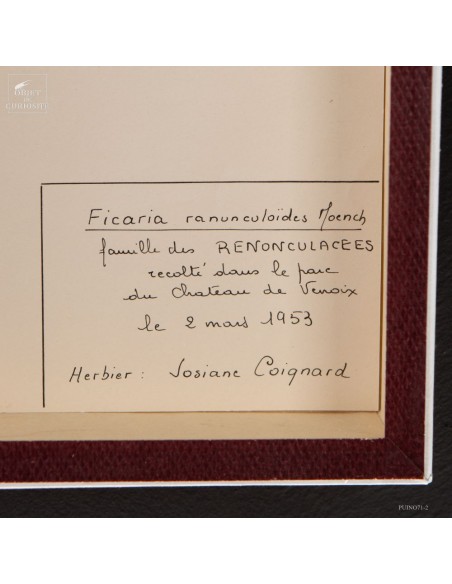 OBJET
DE
CURIOSITÉ
Ficaria ranunculoïdes Moench
famille des RENONCULACEES
recolté dans le parc
du chateau de Venoix
le 2 mars 1953
Herbier : Josiane Coignard
PUINO71-2